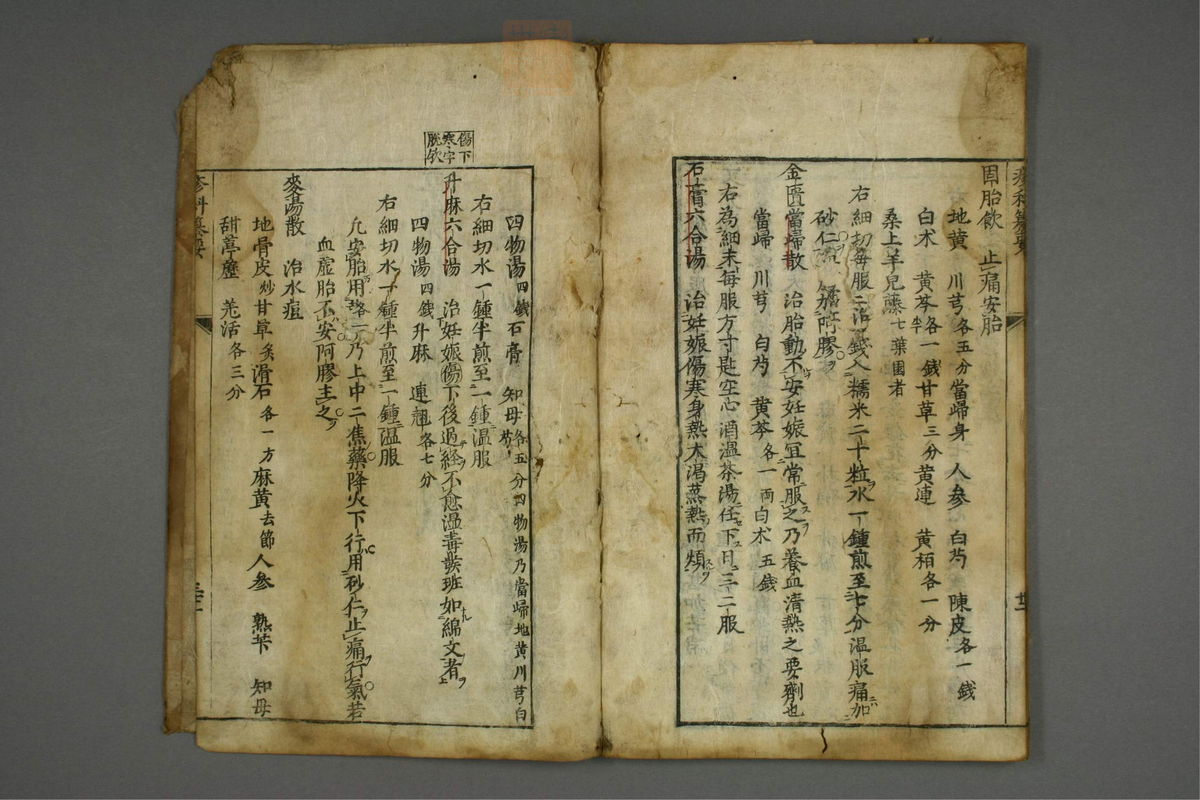 固胎飲　止痛安胎
地黄　川芎各五分當歸身　人參　白芍　陳皮各一錢
白朮　黄芩各一錢半甘草三分黄連　黄栢各一分
桑上羊兒藤七葉圓者
右細切每服二錢入糯米二十粒水一鍾煎至七分温服痛加
砂仁　加阿膠
金匱當歸散　治胎動不安妊娠宜常服之乃養血清熱之要劑也
當歸　川芎　白芍　黄芩各一兩白朮五錢
右為細末每服方寸匙空心酒温茶湯任下日三二服
石膏六合湯　治妊娠傷寒身熱大渴蒸熱而煩
四物湯四錢石膏　知母各五分四物湯乃當歸地黄川芎白芍
右細切水一鍾半煎至一鍾温服
傷下寒字脱欤
升麻六合湯　治妊娠傷下後過經不愈温毒發班如綿文者
四物湯四錢升麻　連翹各七分
右細切水一鍾半煎至一鍾温服
凢安胎用藥乃上中二焦藥降火下行用砂仁止痛行氣若
血虛胎不安阿膠主之
麥湯散　治水痘
地骨皮炒甘草炙滑石各一方麻黄去節人參　知母
甜葶藶　羌活各三分